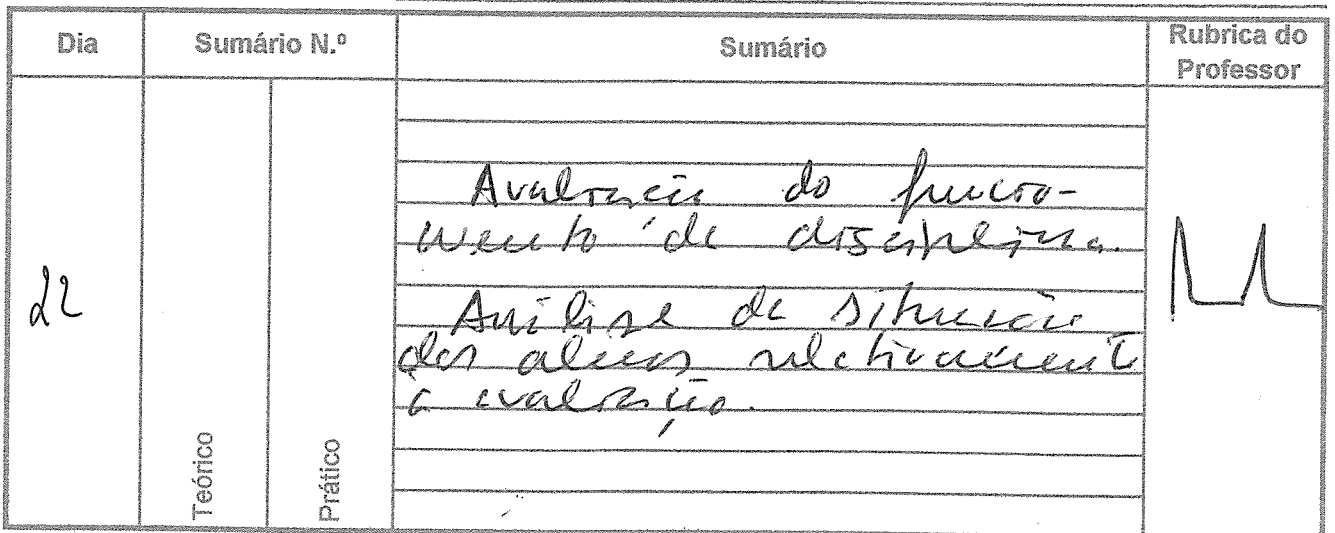 Dia
Sumário N.º
Sumário
Rubrica do
Professor
22
Teórico
Prático
Avaliação do funcio-
mento da disciplina.
Análise da situação
dos alunos relativamente
à avaliação.